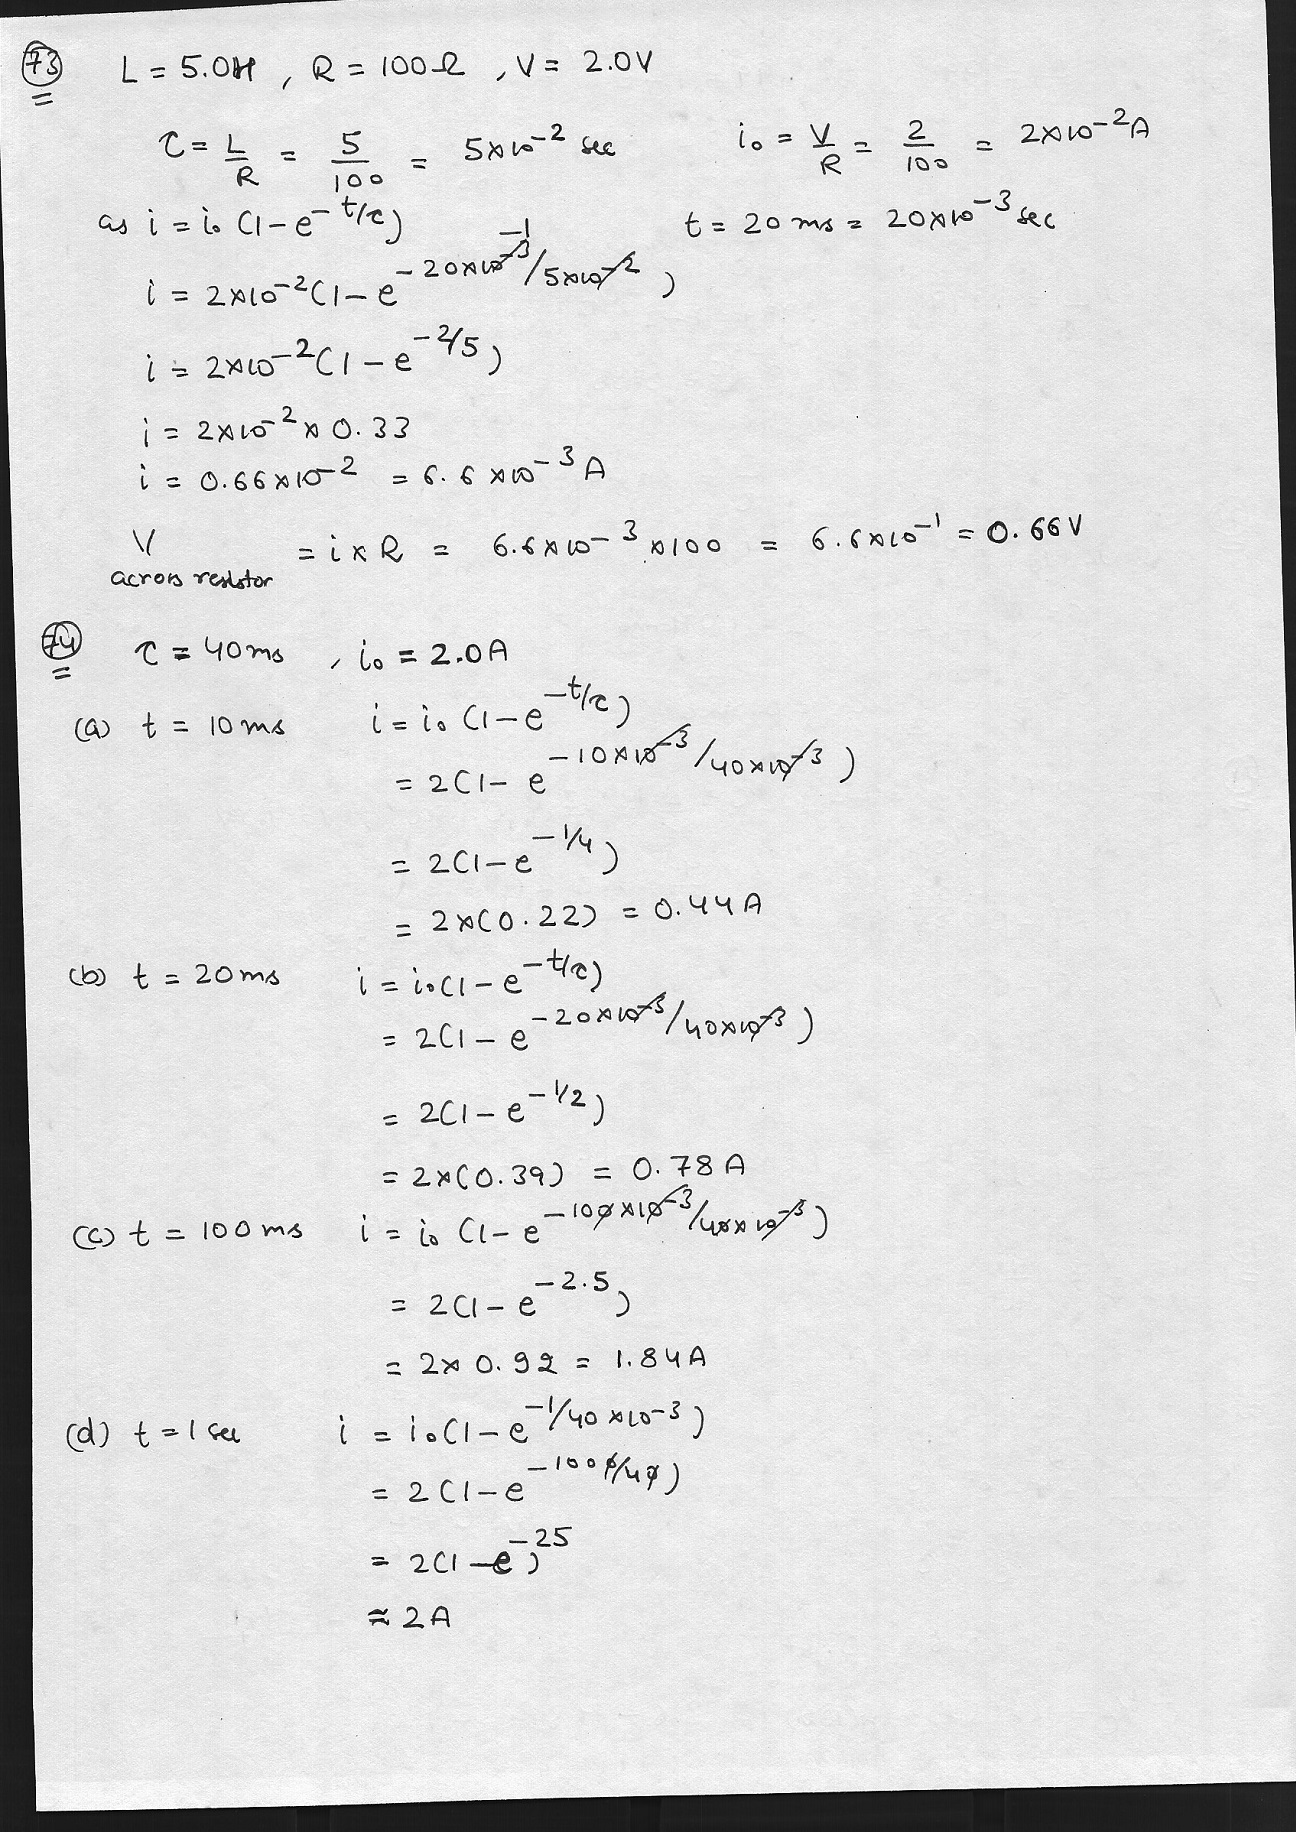 73 L = 5.0H , R = 100Ω , V = 2.0V
τ = L/R = 5/100 = 5×10⁻² sec i₀ = V/R = 2/100 = 2×10⁻²A
as i = i₀ (1-e^-t/τ) t = 20 ms = 20×10⁻³ sec
i = 2×10⁻²(1-e^-20×10⁻³/5×10⁻²) -1
i = 2×10⁻²(1-e^-2/5)
i = 2×10⁻² × 0.33
i = 0.66×10⁻² = 6.6×10⁻³ A
V across resistor = i × R = 6.6×10⁻³ ×100 = 6.6×10⁻¹ = 0.66V
74 τ = 40ms , i₀ = 2.0A
(a) t = 10ms i = i₀ (1-e^-t/τ)
= 2(1-e^-10×10⁻³/40×10⁻³)
= 2(1-e^-1/4)
= 2×(0.22) = 0.44A
(b) t = 20ms i = i₀(1-e^-t/τ)
= 2(1-e^-20×10⁻³/40×10⁻³)
= 2(1-e^-1/2)
= 2×(0.39) = 0.78A
(c) t = 100ms i = i₀ (1-e^-100×10⁻³/40×10⁻³)
= 2(1-e^-2.5)
= 2× 0.92 = 1.84A
(d) t = 1 sec i = i₀(1-e^-1/40×10⁻³)
= 2(1-e^-1000/40)
= 2(1-e)^-25
≈ 2A